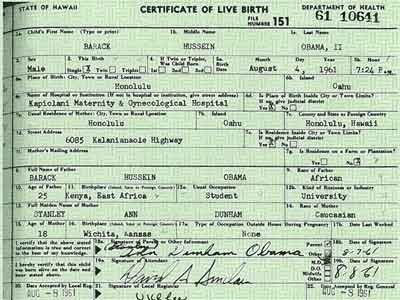 STATE OF HAWAII CERTIFICATE OF LIVE BIRTH DEPARTMENT OF HEALTH
FILE NUMBER 151 61 10641
1a. Child's First Name (Type or print) 1b. Middle Name 1c. Last Name
BARACK HUSSEIN OBAMA, II
2. Sex 3. This Birth 4. If Twin or Triplet, Was Child Born 5a. Birth Date Month Day Year 5b. Hour
Male Single Twin Triplet 1st 2nd 3rd August 4, 1961 7:24 P.M.
6a. Place of Birth: City, Town or Rural Location 6b. Island
Honolulu Oahu
6c. Name of Hospital or Institution (If not in hospital or institution, give street address) 6d. Is Place of Birth Inside City or Town Limits? If no, give judicial district
Kapiolani Maternity & Gynecological Hospital Yes No
7a. Usual Residence of Mother: City, Town or Rural Location 7b. Island 7c. County and State or Foreign Country
Honolulu Oahu Honolulu, Hawaii
7d. Street Address 7e. Is Residence Inside City or Town Limits? If no, give judicial district
6085 Kalanianaole Highway Yes No
7f. Mother's Mailing Address 7g. Is Residence on a Farm or Plantation?
Yes No
8. Full Name of Father 9. Race of Father
BARACK HUSSEIN OBAMA African
10. Age of Father 11. Birthplace (Island, State or Foreign Country) 12a. Usual Occupation 12b. Kind of Business or Industry
25 Kenya, East Africa Student University
13. Full Maiden Name of Mother 14. Race of Mother
STANLEY ANN DUNHAM Caucasian
15. Age of Mother 16. Birthplace (Island, State or Foreign Country) 17a. Type of Occupation Outside Home During Pregnancy 17b. Date Last Worked
18 Wichita, Kansas None
I certify that the above stated information is true and correct to the best of my knowledge. 18a. Signature of Parent or Other Informant Parent Other 18b. Date of Signature
Dunham Obama
I hereby certify that this child was born alive on the date and hour stated above. 19a. Signature of Attendant M.D. D.O. Midwife Other 19b. Date of Signature
8-8-61
20. Date Accepted by Local Reg. 21. Signature of Local Registrar 22. Date Accepted by Reg. General
AUG -8 1961 AUG -8 1961